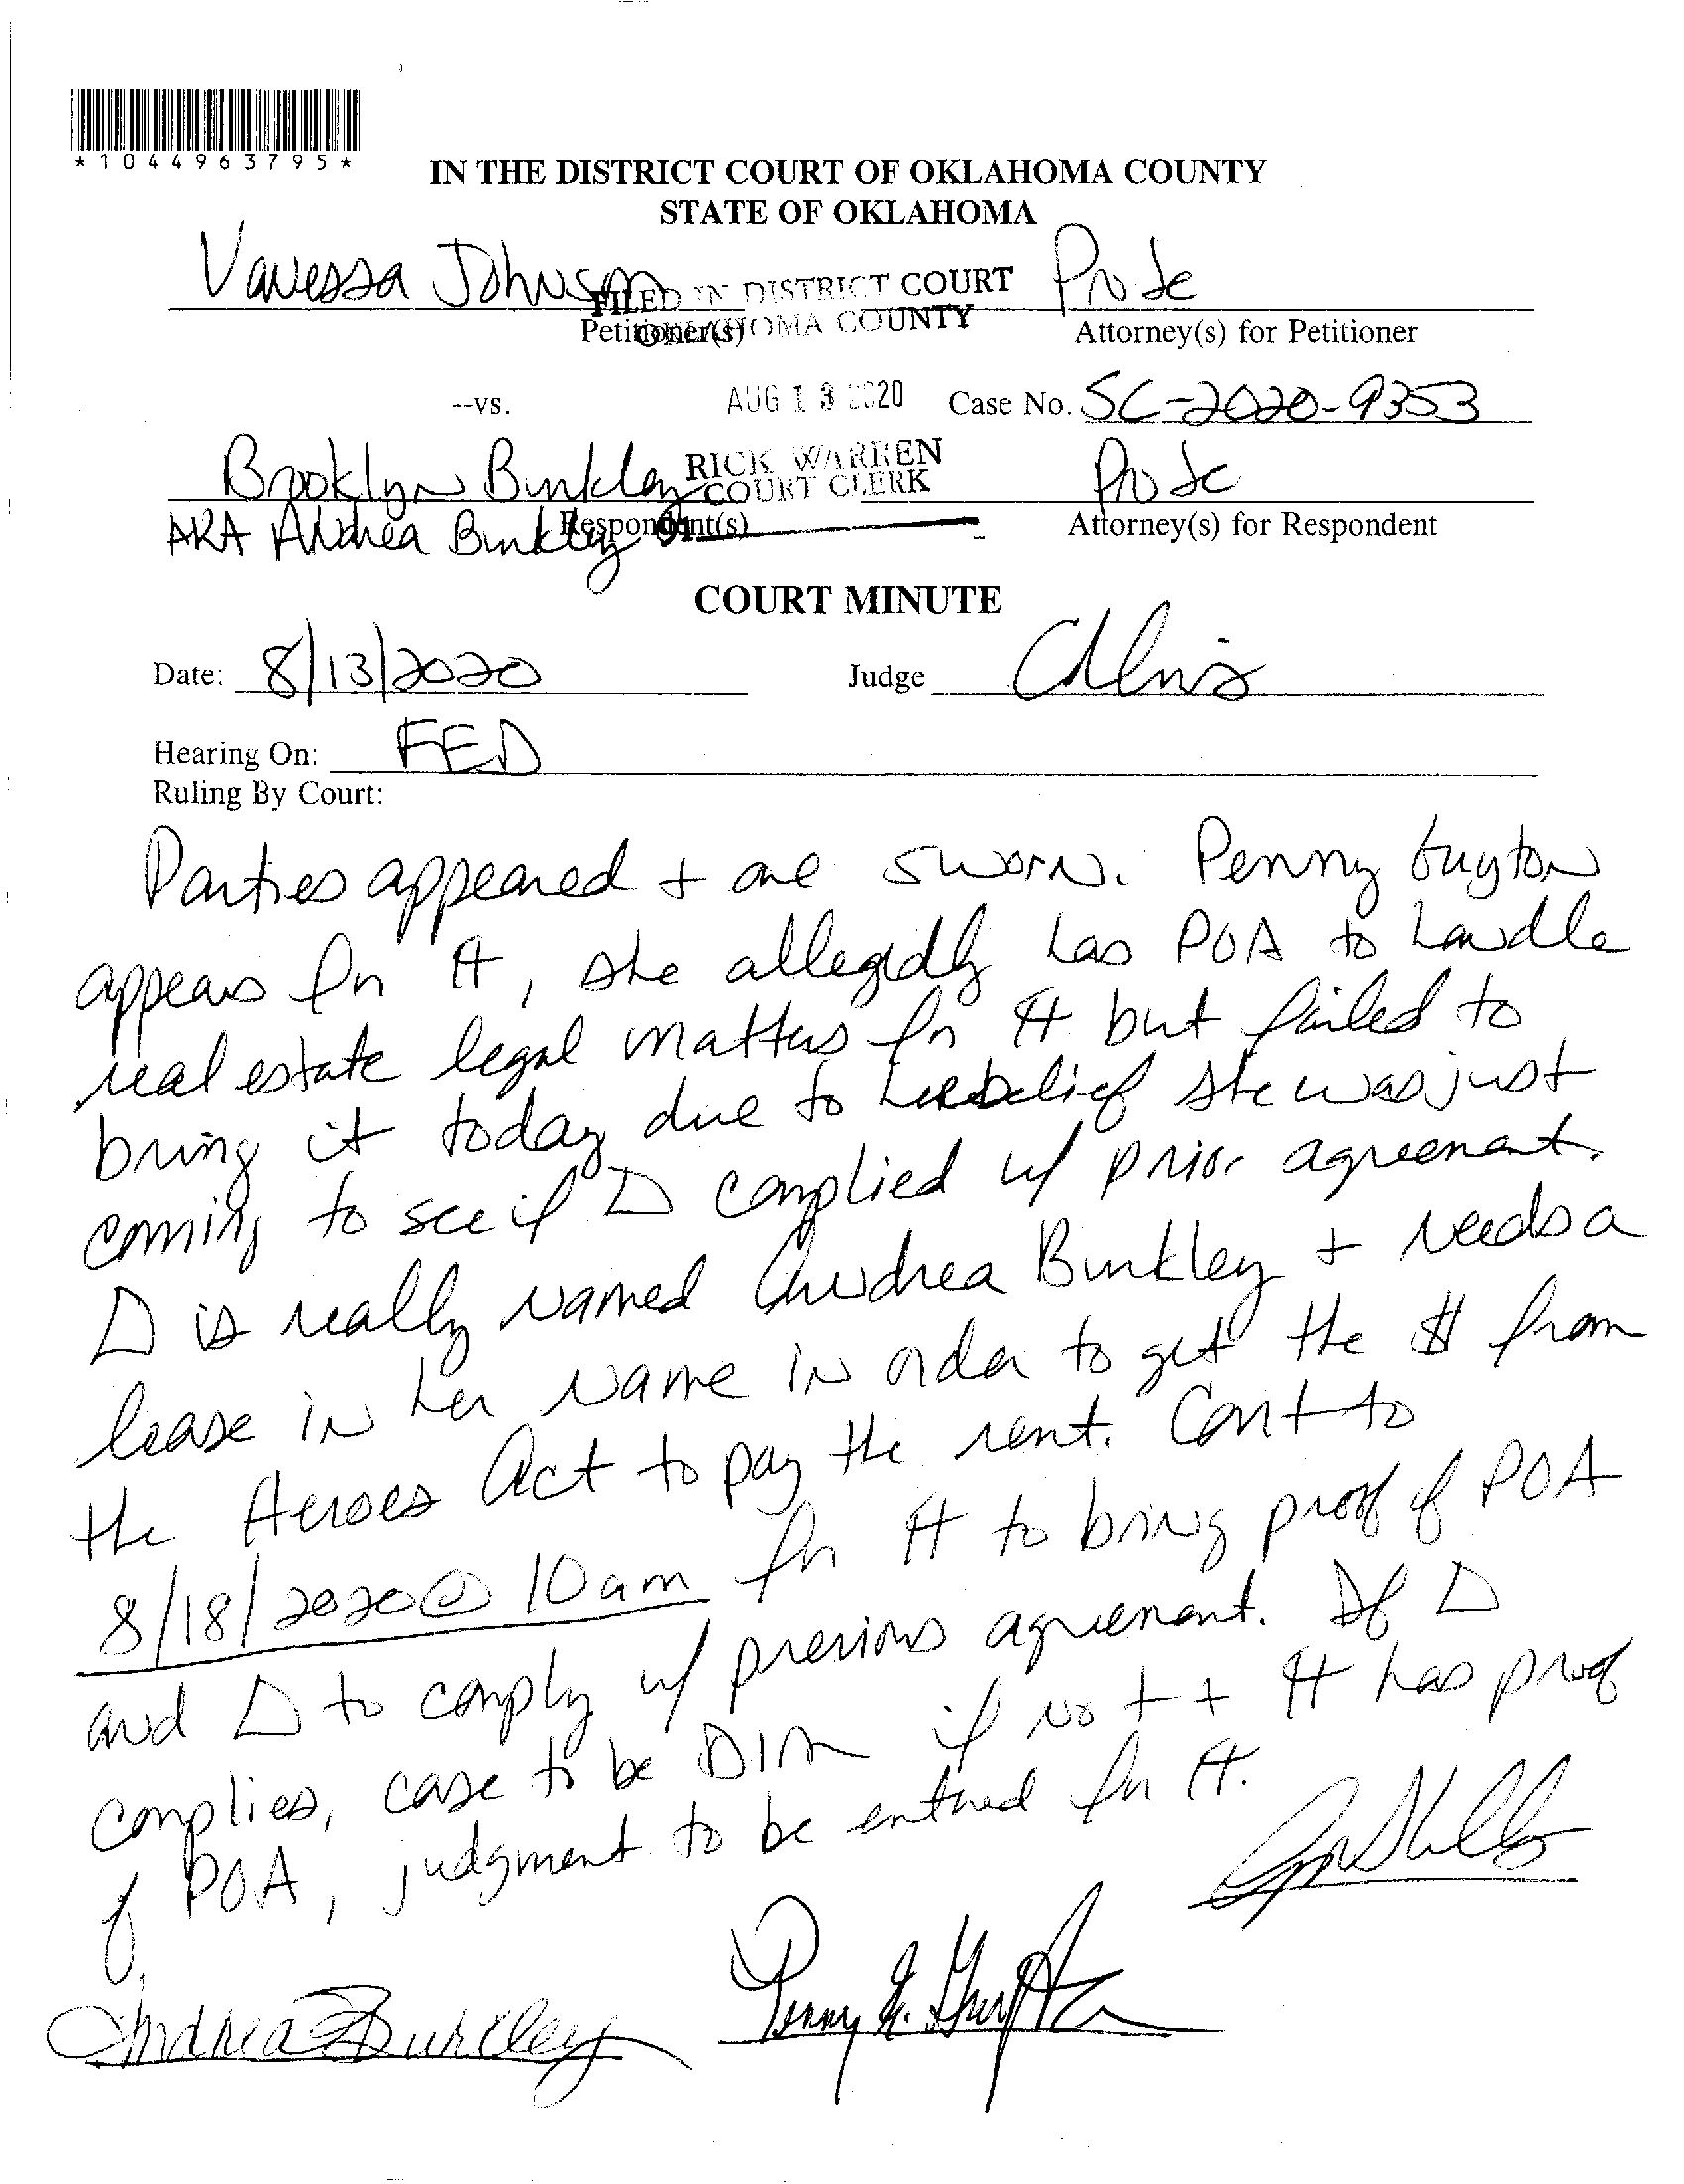 *1044963795*
IN THE DISTRICT COURT OF OKLAHOMA COUNTY
STATE OF OKLAHOMA
Vanessa Johnson Pro Se
FILED IN DISTRICT COURT
OKLAHOMA COUNTY
Petitioner(s) Attorney(s) for Petitioner
--vs. AUG 13 2020 Case No. SC-2020-9353
Brooklyn Binkley Pro Se
RICK WARREN
COURT CLERK
AKA Andrea Binkley Respondent(s) Attorney(s) for Respondent
COURT MINUTE
Date: 8/13/2020 Judge
Hearing On: FED
Ruling By Court:
Parties appeared + are sworn. Penny Guyton
appears for π, she allegedly has POA to handle
real estate legal matters for π but failed to
bring it today due to her belief she was just
coming to see if Δ complied w/ prior agreement.
Δ is really named Andrea Binkley + needs a
lease in her name in order to get the $ from
the Heroes Act to pay the rent. Cont to
8/18/2020 @ 10am for π to bring proof of POA
and Δ to comply w/ previous agreement. If Δ
complies, case to be DIM if not + π has proof
of POA, judgment to be entered for π.
Andrea Binkley Penny G. Guyton